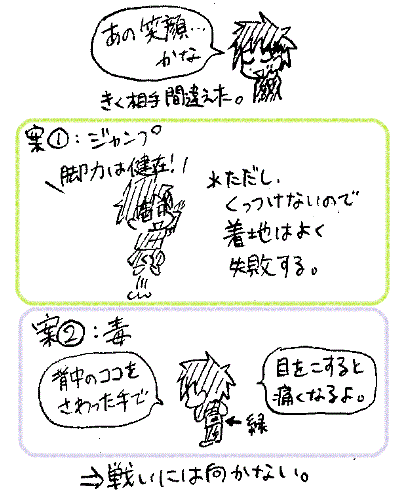 あの笑顔…
かな
きく相手間違えた。
案①：ジャンプ
脚力は健在！！
※ただし、
くっつけないので
着地はよく
失敗する。
案②：毒
背中のココを
さわった手で
目をこすると
痛くなるよ。
←緑
⇒戦いには向かない。